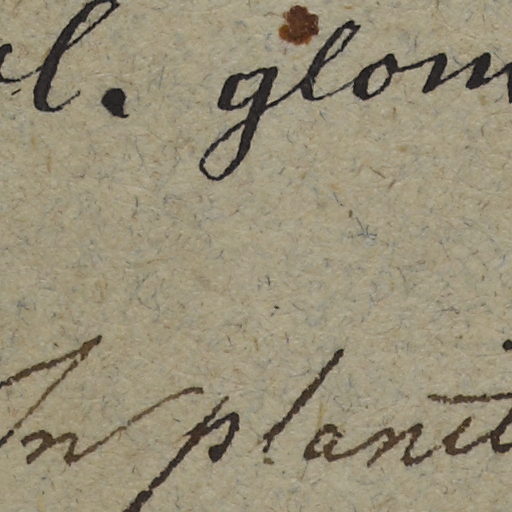 l. glom
In planit